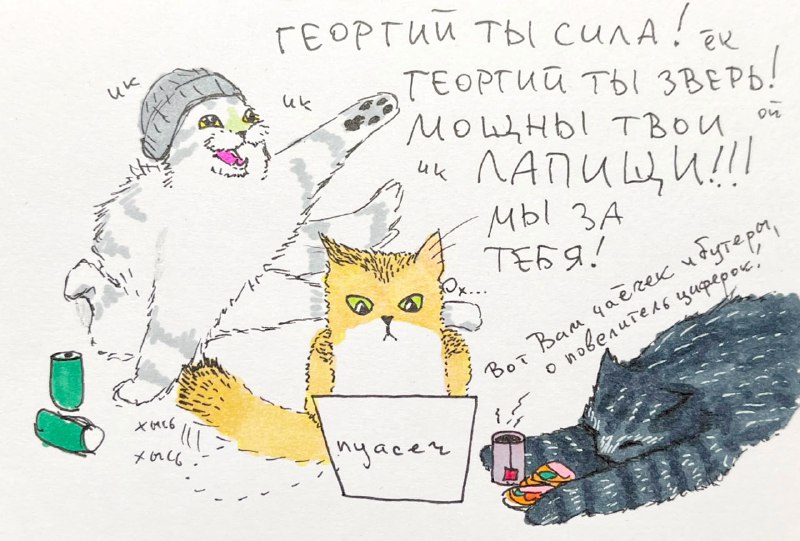 ГЕОРГИЙ ТЫ СИЛА!
ёк
ГЕОРГИЙ ТЫ ЗВЕРЬ!
ой
МОЩНЫ ТВОИ
ик
ЛАПИЩИ!!!
МЫ ЗА
ТЕБЯ!
ик
ик
Ох...
Вот Вам чаёчек и бутеры,
о повелитель циферок!
хысь!!!
хысь
пуасеч